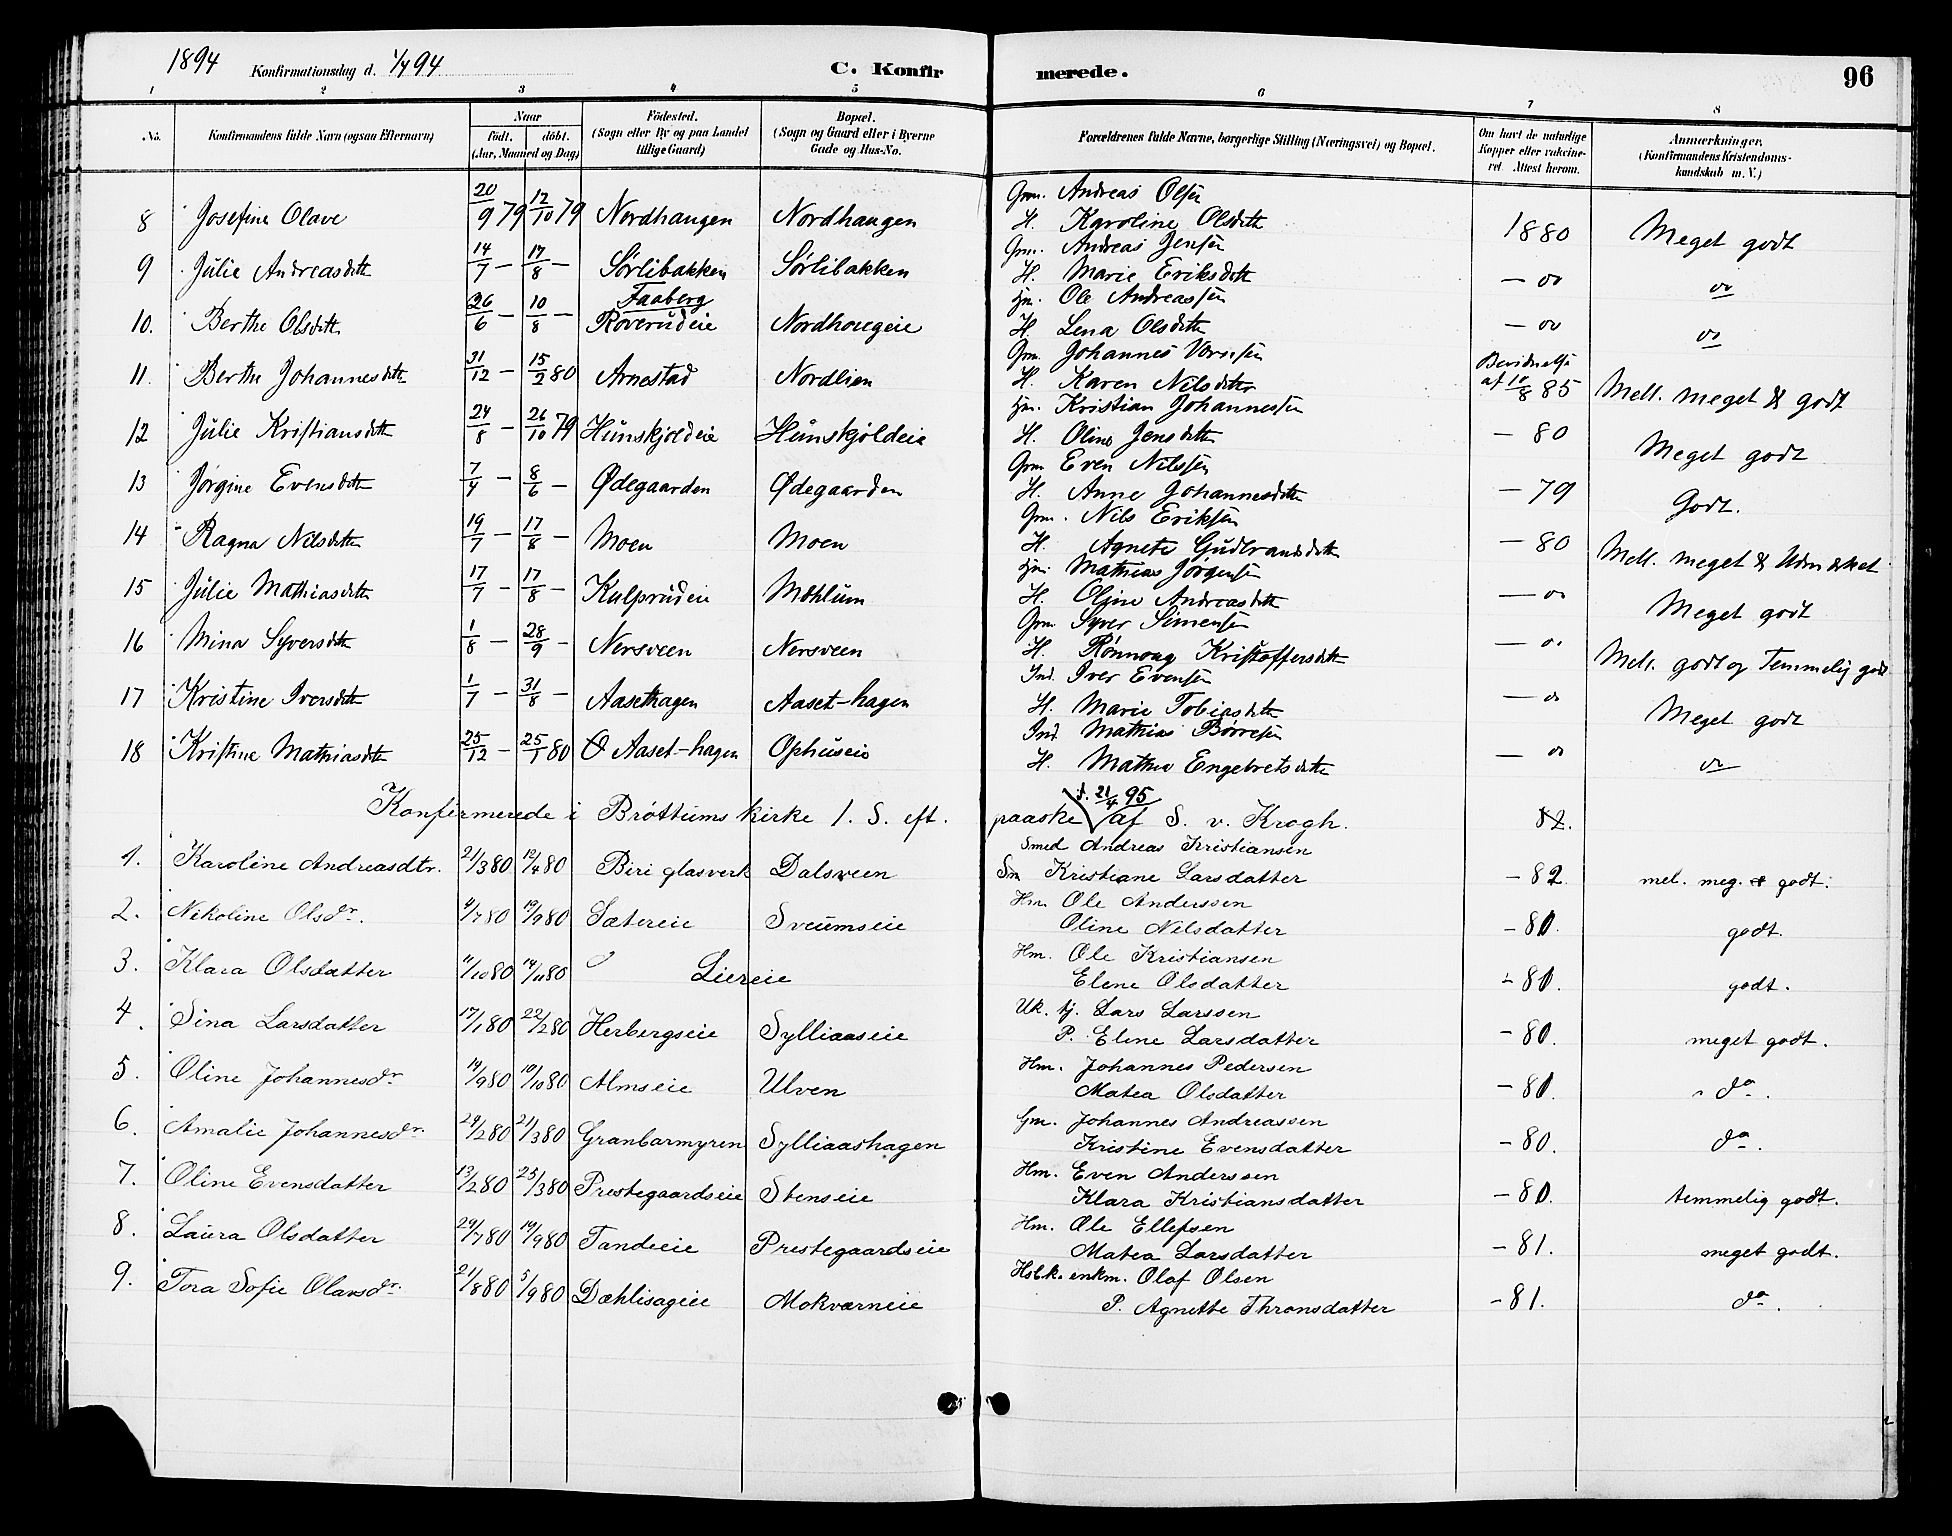 1894 Konfirmationsdag d. 1/4 94 C. Konfirmerede. 96
1 2 3 4 5 6 7 8
No. Konfirmandens fulde Navn (ogsaa Efternavn) Naar født. døbt. (Aar, Maaned og Dag) Fødested. (Sogn eller By og paa Landet tillige Gaard) Bopæl. (Sogn og Gaard eller i Byerne Gade og Hus-No. Forældrenes fulde Navne, borgerlige Stilling (Næringsvei) og Bopæl. Om havt de naturlige Kopper eller vakcineret Attest herom. Anmærkninger. (Konfirmandens Kristendomskundskab m. V.)
8 Josefine Olave 20/9 79 12/10 79 Nordhaugen Nordhaugen Gm. Andreas Olsen
H. Karoline Olsdttr 1880 Meget godt
9 Julie Andreasdttr 14/7 — 17/8 — Sørlibakken Sørlibakken Gm. Andreas Jensen
H. Marie Eriksdttr — " "
10. Berthe Olsdttr 26/6 — 10/8 — Faaberg Roverudeie Nordhougeie Hm. Ole Andreassen
H. Lena Olsdttr — " "
11. Berthe Johannesdttr 31/12 — 15/2 80 Arnestad Nordlien Gm. Johannes
H. Karen Nilsdttr af 10/8 85 Mell. meget & godt
12 Julie Kristiansdttr 24/8 — 26/10 79 Hunskjoldeie Hunskjoldeie Hm. Kristian Johannessen
H. Oline Jensdttr — 80 Meget godt
13 Jørgine Evensdttr 7/4 — 8/6 — Ødegaarden Ødegaarden Gm Even Nilssen
H. Anne Johannesdttr — 79 Godt.
14 Ragna Nilsdttr 19/7 — 17/8 — Moen Moen Gm. Nils Eriksen
H. Agnete Gudbrandsdttr — 80 Mell. meget & Udmærket
15 Julie Mathiasdttr 17/7 — 17/8 — Kulprudeie Mæhlum Hm. Mathias Jørgensen
H. Oline Andreasdttr — " Meget godt
16 Mina Syversdttr 1/8 — 28/9 — Nersveen Nersveen Gm. Syver Simensen
H. Rønnoug Kristoffersdttr — " Mell. godt og Temmelig godt
17 Kristine Iversdttr 1/7 — 31/8 — Aasethagen Aaset-hagen Ind. Iver Evensen
H. Marie Tobiasdttr — " Meget godt
18 Kristine Mathiasdttr 25/12 — 25/1 80 Aaset-hagen Ophuseie Ind. Mathias Børresen
H. Mathea Engebretsdttr — " "
Konfirmerede i Brøttums kirke 1. S. eft. paaske d. 21/4 95 af S. v. Krogh.
1. Karoline Andreasdtr. 21/3 80 12/4 80 Biri glasverk Dalsveen Smed Andreas Kristiansen
Kristiane Larsdatter - 82 mel. meg. & godt.
2. Nikoline Olsdr. 4/7 80 19/9 80 Sætereie Sveumseie Hm. Ole Anderssen
Oline Nilsdatter - 81. godt.
3. Klara Olsdatter 11/10 80 14/11 80 Liereie Hm. Ole Kristiansen
Elene Olsdatter - 81. godt.
4. Sina Larsdatter 17/1 80 22/2 80 Herbergseie Sylliaaseie Uk. tj. Lars Larssen
P. Elene Larsdatter - 80. meget godt.
5. Oline Johannesdr. 14/9 80 10/10 80 Almseie Ulven Hm. Johannes Pedersen
Matea Olsdatter - 81. do.
6. Amalie Johannesdr. 24/2 80 21/3 80 Granbarmyren Sylliaashagen Gm. Johannes Andreassen
Kristine Evensdatter - 80. do.
7. Oline Evensdatter 13/2 80 25/3 80 Prestegaardseie Stenseie Hm. Even Anderssen
Klara Kristiansdatter - 80. temmelig godt.
8. Laura Olsdatter 29/7 80 19/9 80 Tandeeie Prestegaardseie Hm. Ole Ellefsen
Matea Larsdatter - 81. meget godt.
9. Tora Sofie Olavsdr. 21/8 80 5/9 80 Dæhlisageie Mokværneie Hsbk. enkm. Olaf Olsen
P. Agnette Thronsdatter - 81. do.